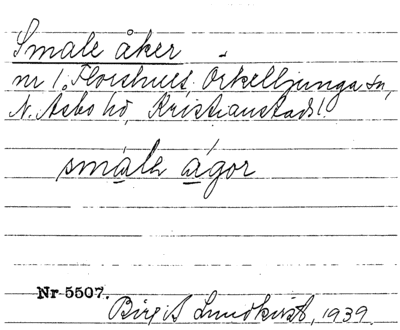 Smale åker
nr 1. Florshult, Örkelljunga sn,
N. Åsbo hd, Kristianstads l.
småle ågor
Nr 5507.
Birgit Lundkvist, 1939.